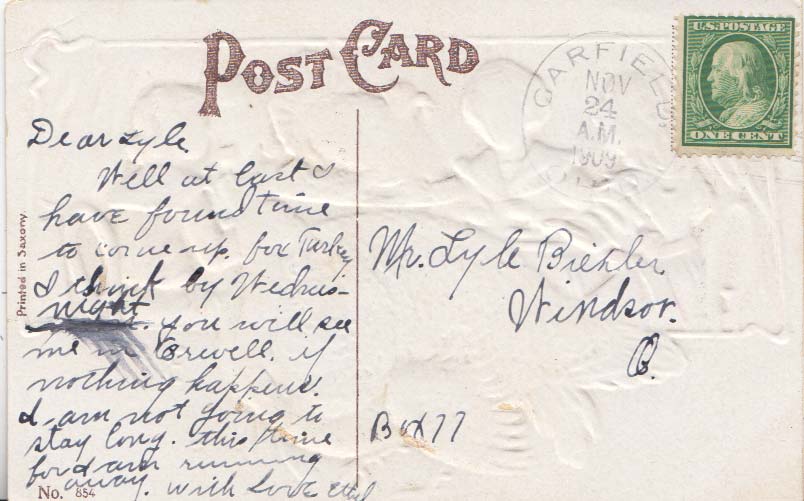 POST CARD
U.S. POSTAGE
ONE CENT
GARFIELD
NOV
24
A.M.
1909
OHIO
Dear Lyle
Well at last I
have found time
to come up. for Turkey
I think by Wednes-
night. you will see
me in Orwell. if
nothing happens.
I am not going to
stay long. this time
for I am running
away. with Love Ethel
Mr. Lyle Biehler
Windsor.
O.
Box 77
Printed in Saxony
No. 854